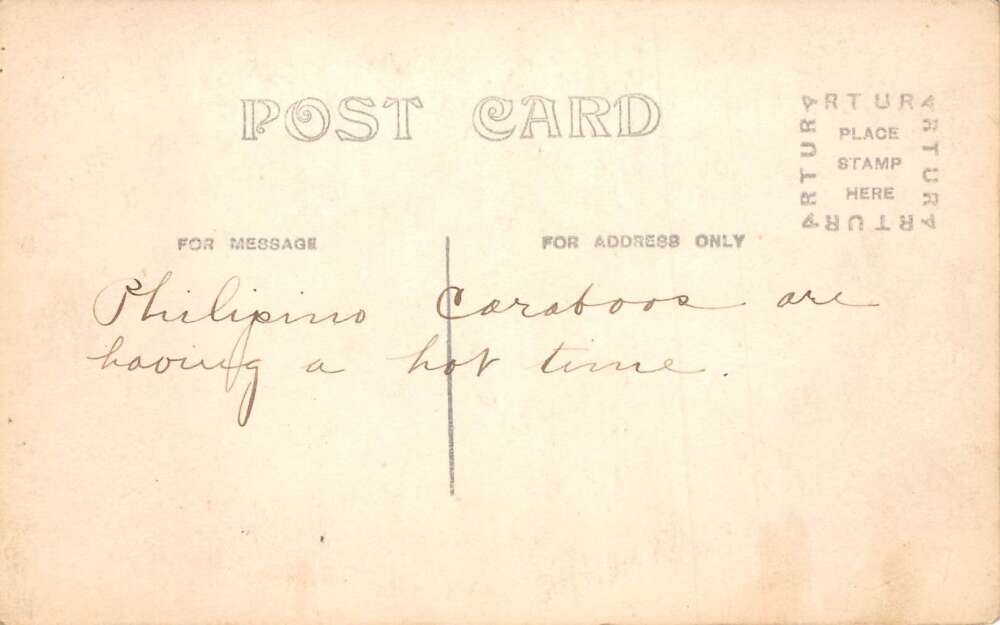 POST CARD
ARTURA
ARTURA
ARTURA
ARTURA
PLACE
STAMP
HERE
FOR MESSAGE
FOR ADDRESS ONLY
Philipino Caraboos are
having a hot time.